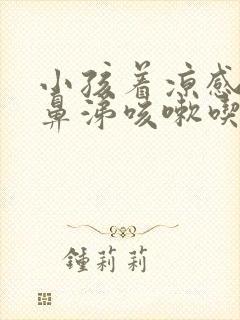 小孩着凉感
鼻涕咳嗽喫
鍾莉莉